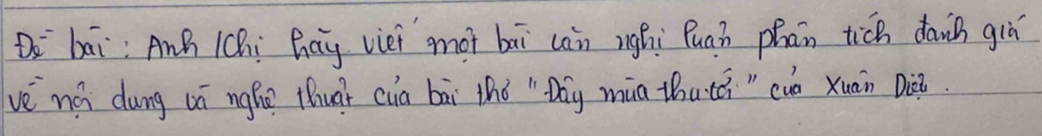 Đề bài: Anh / Chị hãy viết một bài văn nghị luận phân tích đánh giá
về nội dung và nghệ thuật của bài thơ "Đây mùa thu tới" của Xuân Diệu.